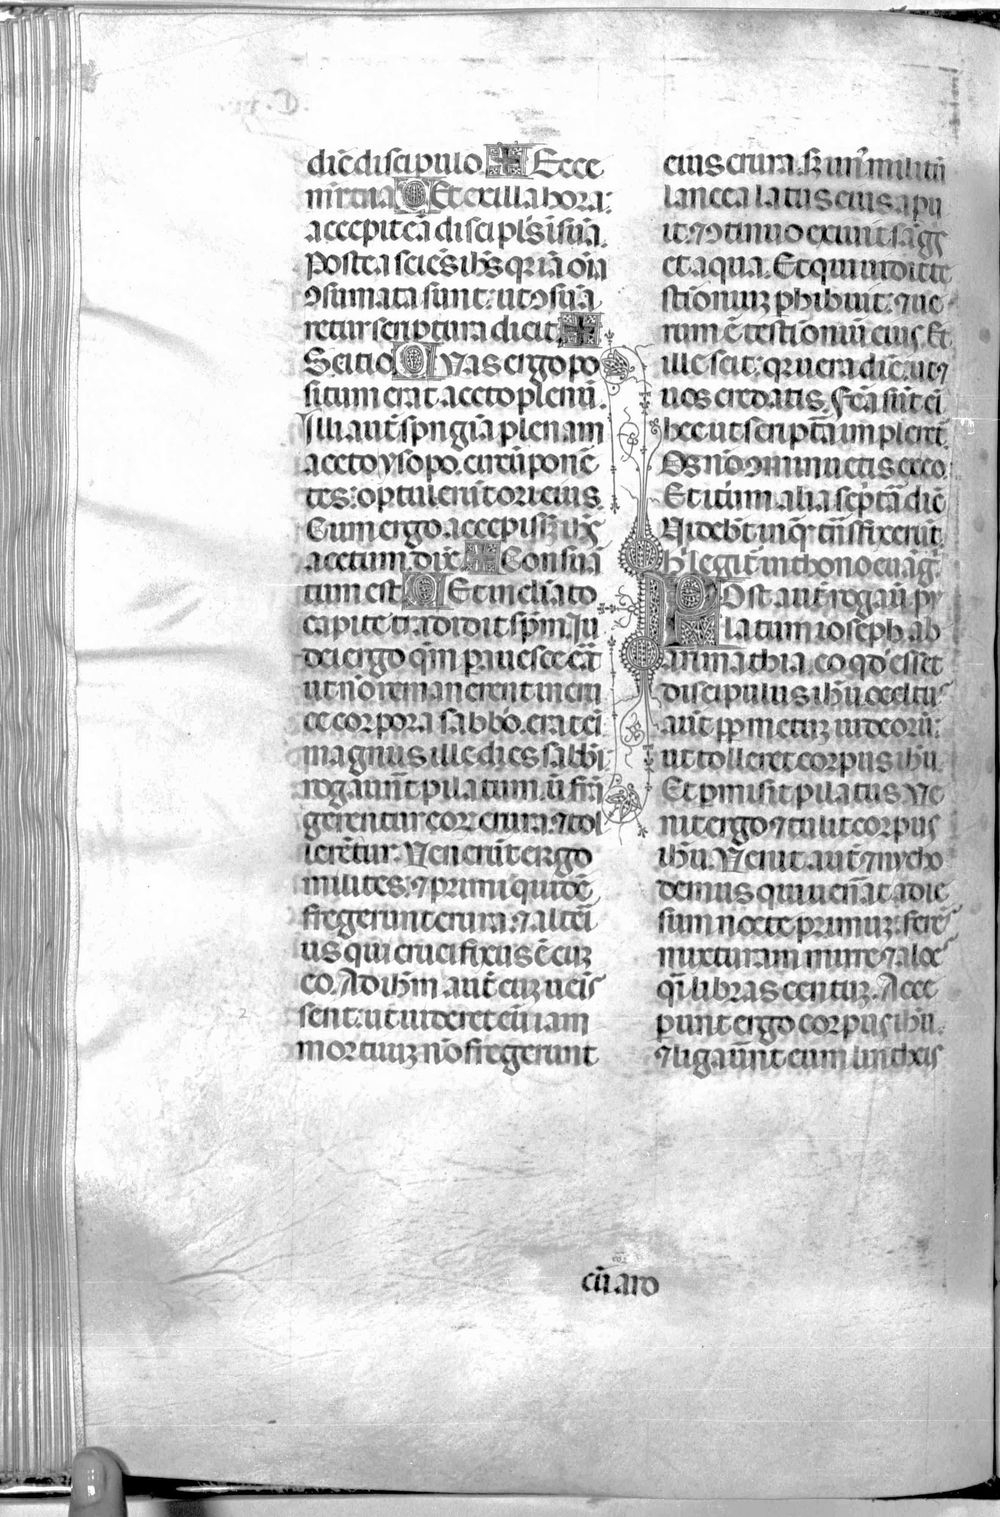 dic̄ discipulo. ✠ Ecce
mr̄ tua C Et ex illa hora:
accepit eā discipl's ī suā.
Postea sciēs ih̄s qr iā oīa
ꝯsumata sunt: ut ꝯsūa
retur scriptura dicit ✠
Scitio C Vas ergo po
situm erat aceto plenū.
Illi aut̄ spngiā plenam
aceto ysopo. circūponē
tes: optulerūt ori eius.
Cum ergo accepisꝫ ih̄s
acetum. dix̄ ✠ Consūa
tum est C Et inclinato
capite tradidit sp̄m. Iu
dei ergo qm̄ paiascee erat
ut nō remanerent in cru
ce corpora sabb̄o. erat ei
magnus ille dies sabb̄i
rogauer̄t pilatum. ū frā
gerentur eorr crura. ⁊ tol
lerētur. Venerūt ergo
milites: ⁊ primi quidē
fregerunt crura. ⁊ alteri
us qui crucifixus ē cuꝫ
eo. Ad ih̄m aut̄ cuꝫ ueis
sent: ut uiderēt eū iam
mortuuꝫ nō fregerunt
eius crura. sꝫ un' militū
lancea latus eius apu
it. ⁊ ꝯtinuo exiuit sāg's
et aqua. Et qui uidit te
stīoniuꝫ phibuit: ⁊ ue
rum ē testīoniū eius. Et
ille scit: qr uera dic̄. ut ⁊
uos credatis. Fc̄a sūt ei
hec ut scriptā impleret̄
Os nō ꝯminuetis ex eo
Et itum alia sc̄ptā dic̄
Videbūt in q̄ trāsfixerūt.
h' legit̄ in thono euāḡ.
Post aut̄ rogau' py
latum ioseph ab
arimathia. eo qd' esset
discipulus ih̄u. occultus
aut̄ pp metuꝫ iudeorū:
ut tolleret corpus ih̄u.
Et pmisit pilatus. Ve
nit ergo ⁊ tulit corpus
ih̄u. Venit aut̄ ⁊ nycho
demus qui uen̄at ad ie
sum nocte primuꝫ: fere's
mixturam mirre ⁊ aloes
q̄i libras centuꝫ. Acce
punt ergo corpus ih̄u.
⁊ ligauer̄nt eum lintheis
cū aro